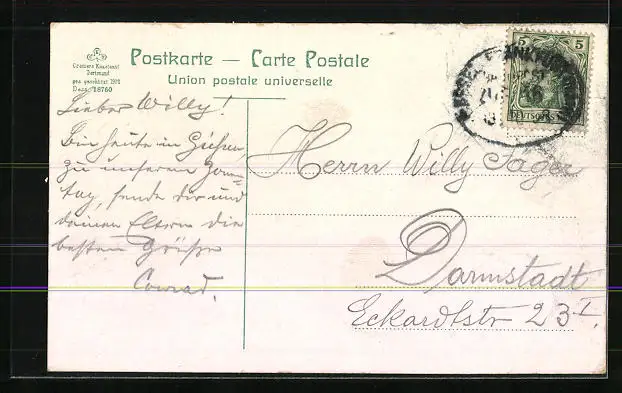 Postkarte — Carte Postale
Union postale universelle
Cramers Kunstanst
Dortmund
ges. geschützt 1901
Dess. 18760
5 5
DEUTSCHES
Lieber Willy!
Bin heute in Gießen
zu unserem
tag, sende dir und
deinen Eltern die
besten Grüße
Conrad.
Herrn Willy Jäger
Darmstadt
Eckardtstr 23 I.